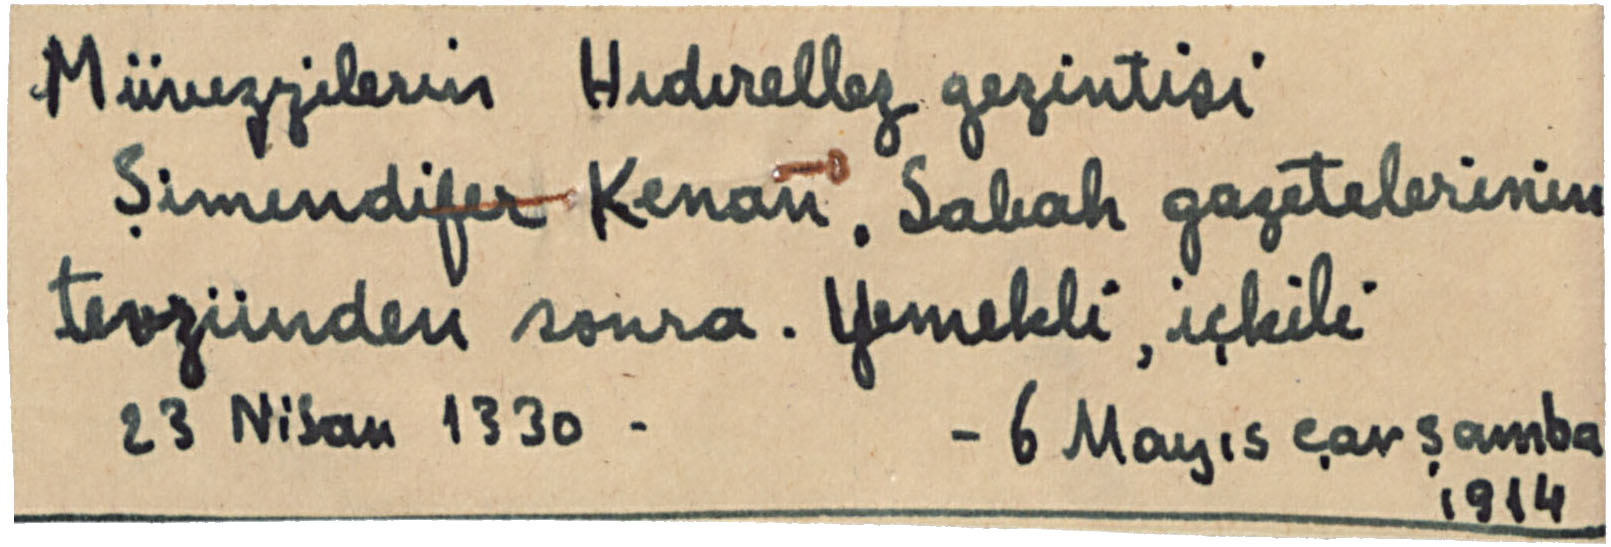 Müvezzilerin Hıdırellez gezintisi
Şimendifer Kenan, Sabah gazetelerinin
tevziinden sonra. Yemekli, içkili
23 Nisan 1330 - - 6 Mayıs çarşamba
1914